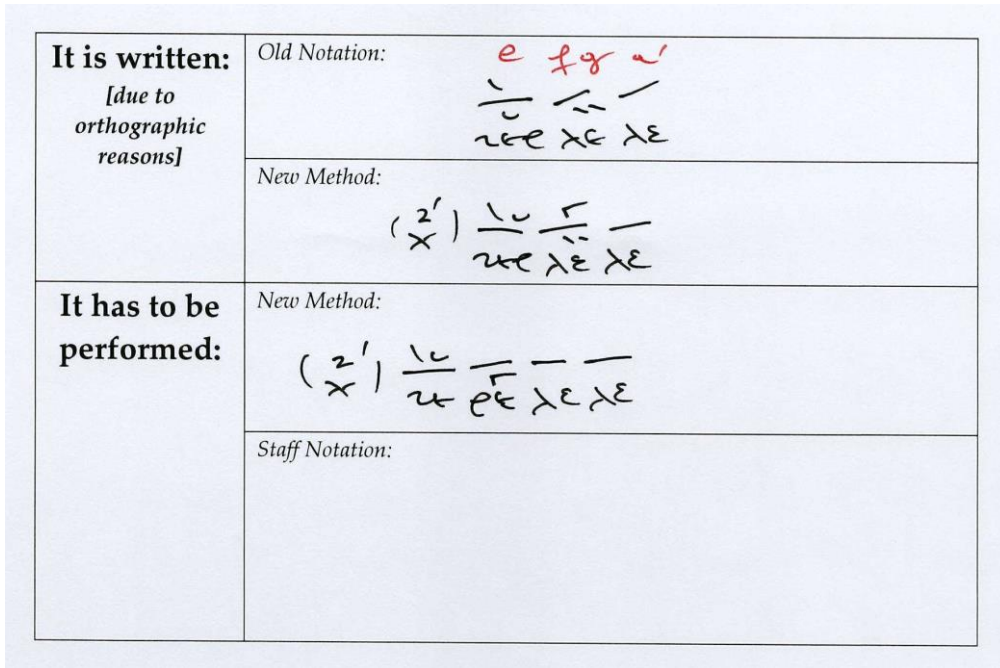 It is written:
[due to
orthographic
reasons]
Old Notation:
e f g a'
λε λε
New Method:
λε λε
It has to be
performed:
New Method:
λε λε
Staff Notation: